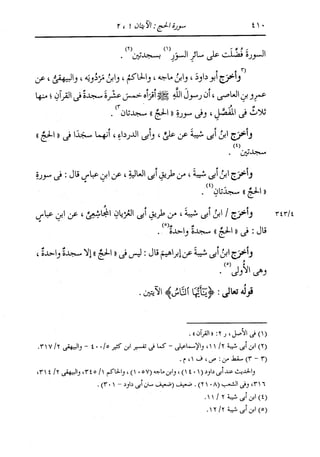 ٤١٠ سورة الحج : الآيتان ١ ، ٢
السورة فُضِّلت على سائرِ السوَرِ(١) بسجدتين(٢) .
(٣وأخرَج أبو داودَ ، وابنُ ماجه ، والحاكمُ ، وابنُ مَرْدُويَه ، والبيهقيُّ ، عن
عمرو بنِ العاصى ، أن رسولَ اللَّهِ ﷺ أقرَأه خمسَ عشْرةَ سجدةً فى القرآنِ ؛ منها
ثلاثٌ فى المُفَصَّلِ ، وفى سورةِ « الحجِّ » سجدتان٣) .
وأخرَج ابنُ أبى شيبةَ عن علىٍّ ، وأبى الدرداءِ ، أنهما سجَدا فى « الحجِّ »
سجدتَين(٤) .
وأخرَج ابنُ أبى شيبةَ ، من طريقِ أبى العاليةِ ، عن ابنِ عباسٍ قال : فى سورةِ
« الحجِّ » سجدتان(٤) .
٣٤٣/٤ وأخرَج / ابنُ أبى شيبةَ ، من طريقِ أبى العُرْيانِ المجُاشِعىِّ ، عن ابنِ عباسٍ
قال : فى « الحجِّ » سجدةٌ واحدةٌ(٥) .
وأخرَج ابنُ أبى شيبةَ عن إبراهيمَ قال : ليس فى « الحجِّ » إلا سجدةٌ واحدةٌ ،
وهى الأُولَى(٥) .
قولُه تعالى : ﴿يَٰٓأَيُّهَا ٱلنَّاسُ﴾ الآيتين .
(١) فى الأصل ، ر ٢: « القرآن » .
(٢) ابن أبى شيبة ١١/٢، والإسماعيلى - كما فى تفسير ابن كثير ٤٠٠/٥ - والبيهقى ٣١٧/٢.
(٣ - ٣) سقط من : ص ، ف ١، م .
والحديث عند أبى داود (١٤٠١) ، وابن ماجه (١٠٥٧) ، والحاكم ٣٤٥/١، والبيهقى ٣١٤/٢،
٣١٦، وفى الشعب (٢١٠٨) . ضعيف (ضعيف سنن أبى داود - ٣٠١) .
(٤) ابن أبى شيبة ١١/٢.
(٥) ابن أبى شيبة ١٢/٢.